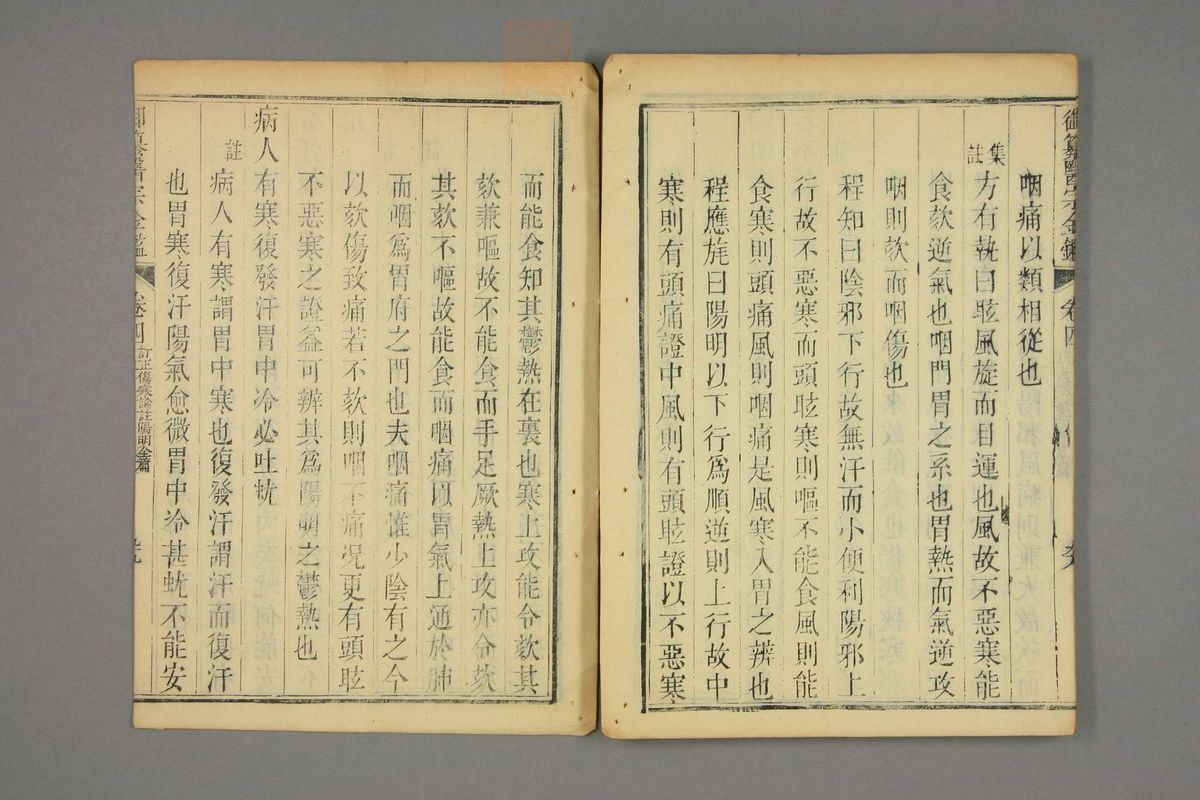 御纂醫宗金鑑 卷四
咽痛以類相從也
集註 方有執曰眩風旋而目運也風故不惡寒能
食欬逆氣也咽門胃之系也胃熱而氣逆攻
咽則欬而咽傷也
程知曰陰邪下行故無汗而小便利陽邪上
行故不惡寒而頭眩寒則嘔不能食風則能
食寒則頭痛風則咽痛是風寒入胃之辨也
程應旄曰陽明以下行爲順逆則上行故中
寒則有頭痛證中風則有頭眩證以不惡寒
而能食知其鬱熱在裏也寒上攻能令欬其
欬兼嘔故不能食而手足厥熱上攻亦令欬
其欬不嘔故能食而咽痛以胃氣上通於肺
而咽爲胃府之門也夫咽痛惟少陰有之今
以欬傷致痛若不欬則咽不痛況更有頭眩
不惡寒之證益可辨其爲陽明之鬱熱也
病人有寒復發汗胃中冷必吐蚘
註 病人有寒謂胃中寒也復發汗謂汗而復汗
也胃寒復汗陽氣愈微胃中冷甚蚘不能安
御纂醫宗金鑑 卷四 訂正傷寒論註陽明全篇